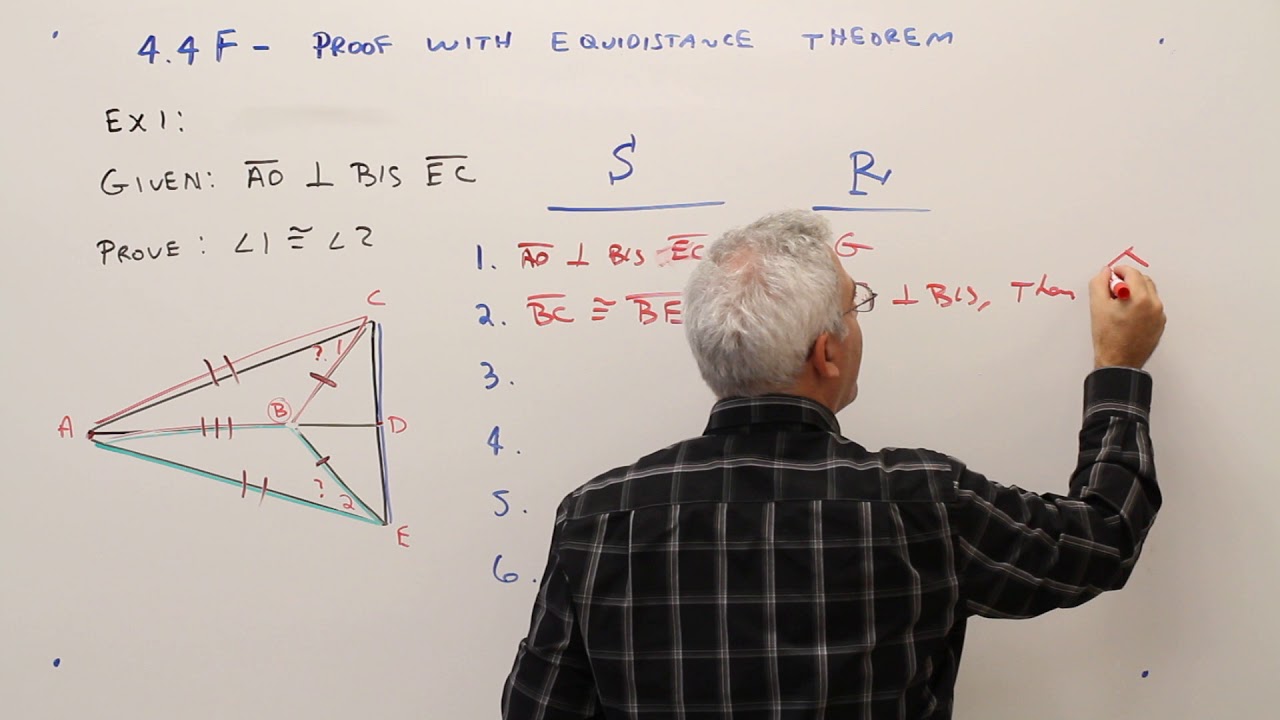 4.4F - PROOF WITH EQUIDISTANCE THEOREM
EX1:
GIVEN: AD ⊥ BIS EC
PROVE: ∠1 ≅ ∠2
S
R
1. AD ⊥ BIS EC G
2. BC ≅ BE ⊥ BIS, Then
3.
4.
5.
6.
C
? 1
A
B
D
? 2
E